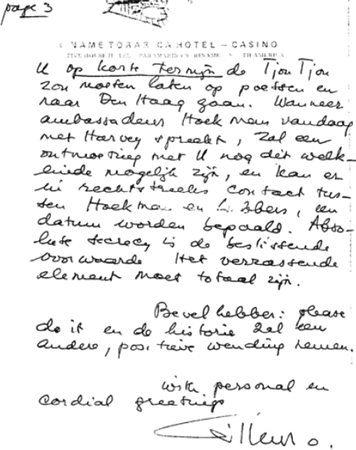 page 3
TORARICA HOTEL - CASINO
U op korte termijn de Tjon Tjon
zou moeten laten op poetsen en
naar Den Haag gaan. Wanneer
ambassadeur Hoekman vandaag
met Harvey spreekt, zal een
ontmoeting met U nog dit week-
einde mogelijk zijn, en kan er
in rechtstreeks contact tus-
sen Hoekman en Lubbers, een
datum worden bepaald. Abso-
lute secrecy is de beslissende
voorwaarde Het verrassende
element moet totaal zijn.
Bevelhebber: please
do it en de historie zal een
andere, positieve wending nemen.
with personal en
cordial greetings
Willem O.